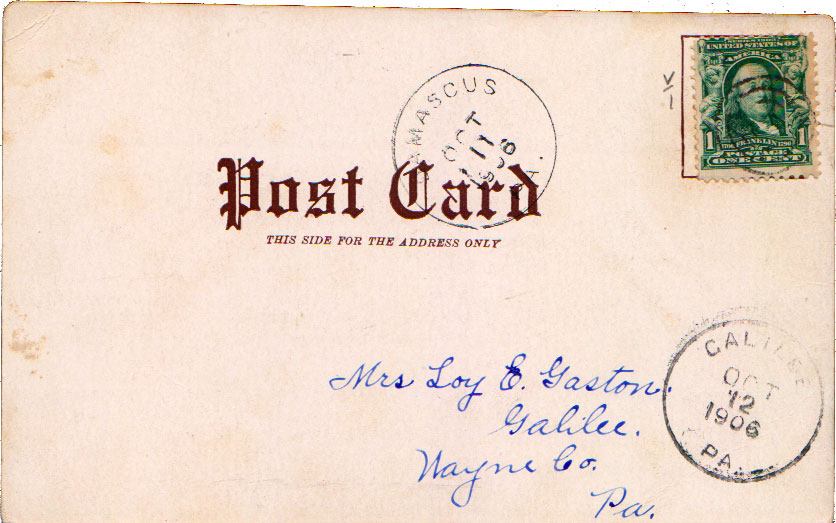 SERIES 1902
UNITED STATES OF
AMERICA
1 1706 FRANKLIN 1790 1
POSTAGE
ONE CENT
V/1
AMASCUS
OCT
11
1906
PA.
Post Card
THIS SIDE FOR THE ADDRESS ONLY
GALILEE
OCT
12
1906
PA.
Mrs Loy E. Gaston.
Galilee.
Wayne Co.
Pa.